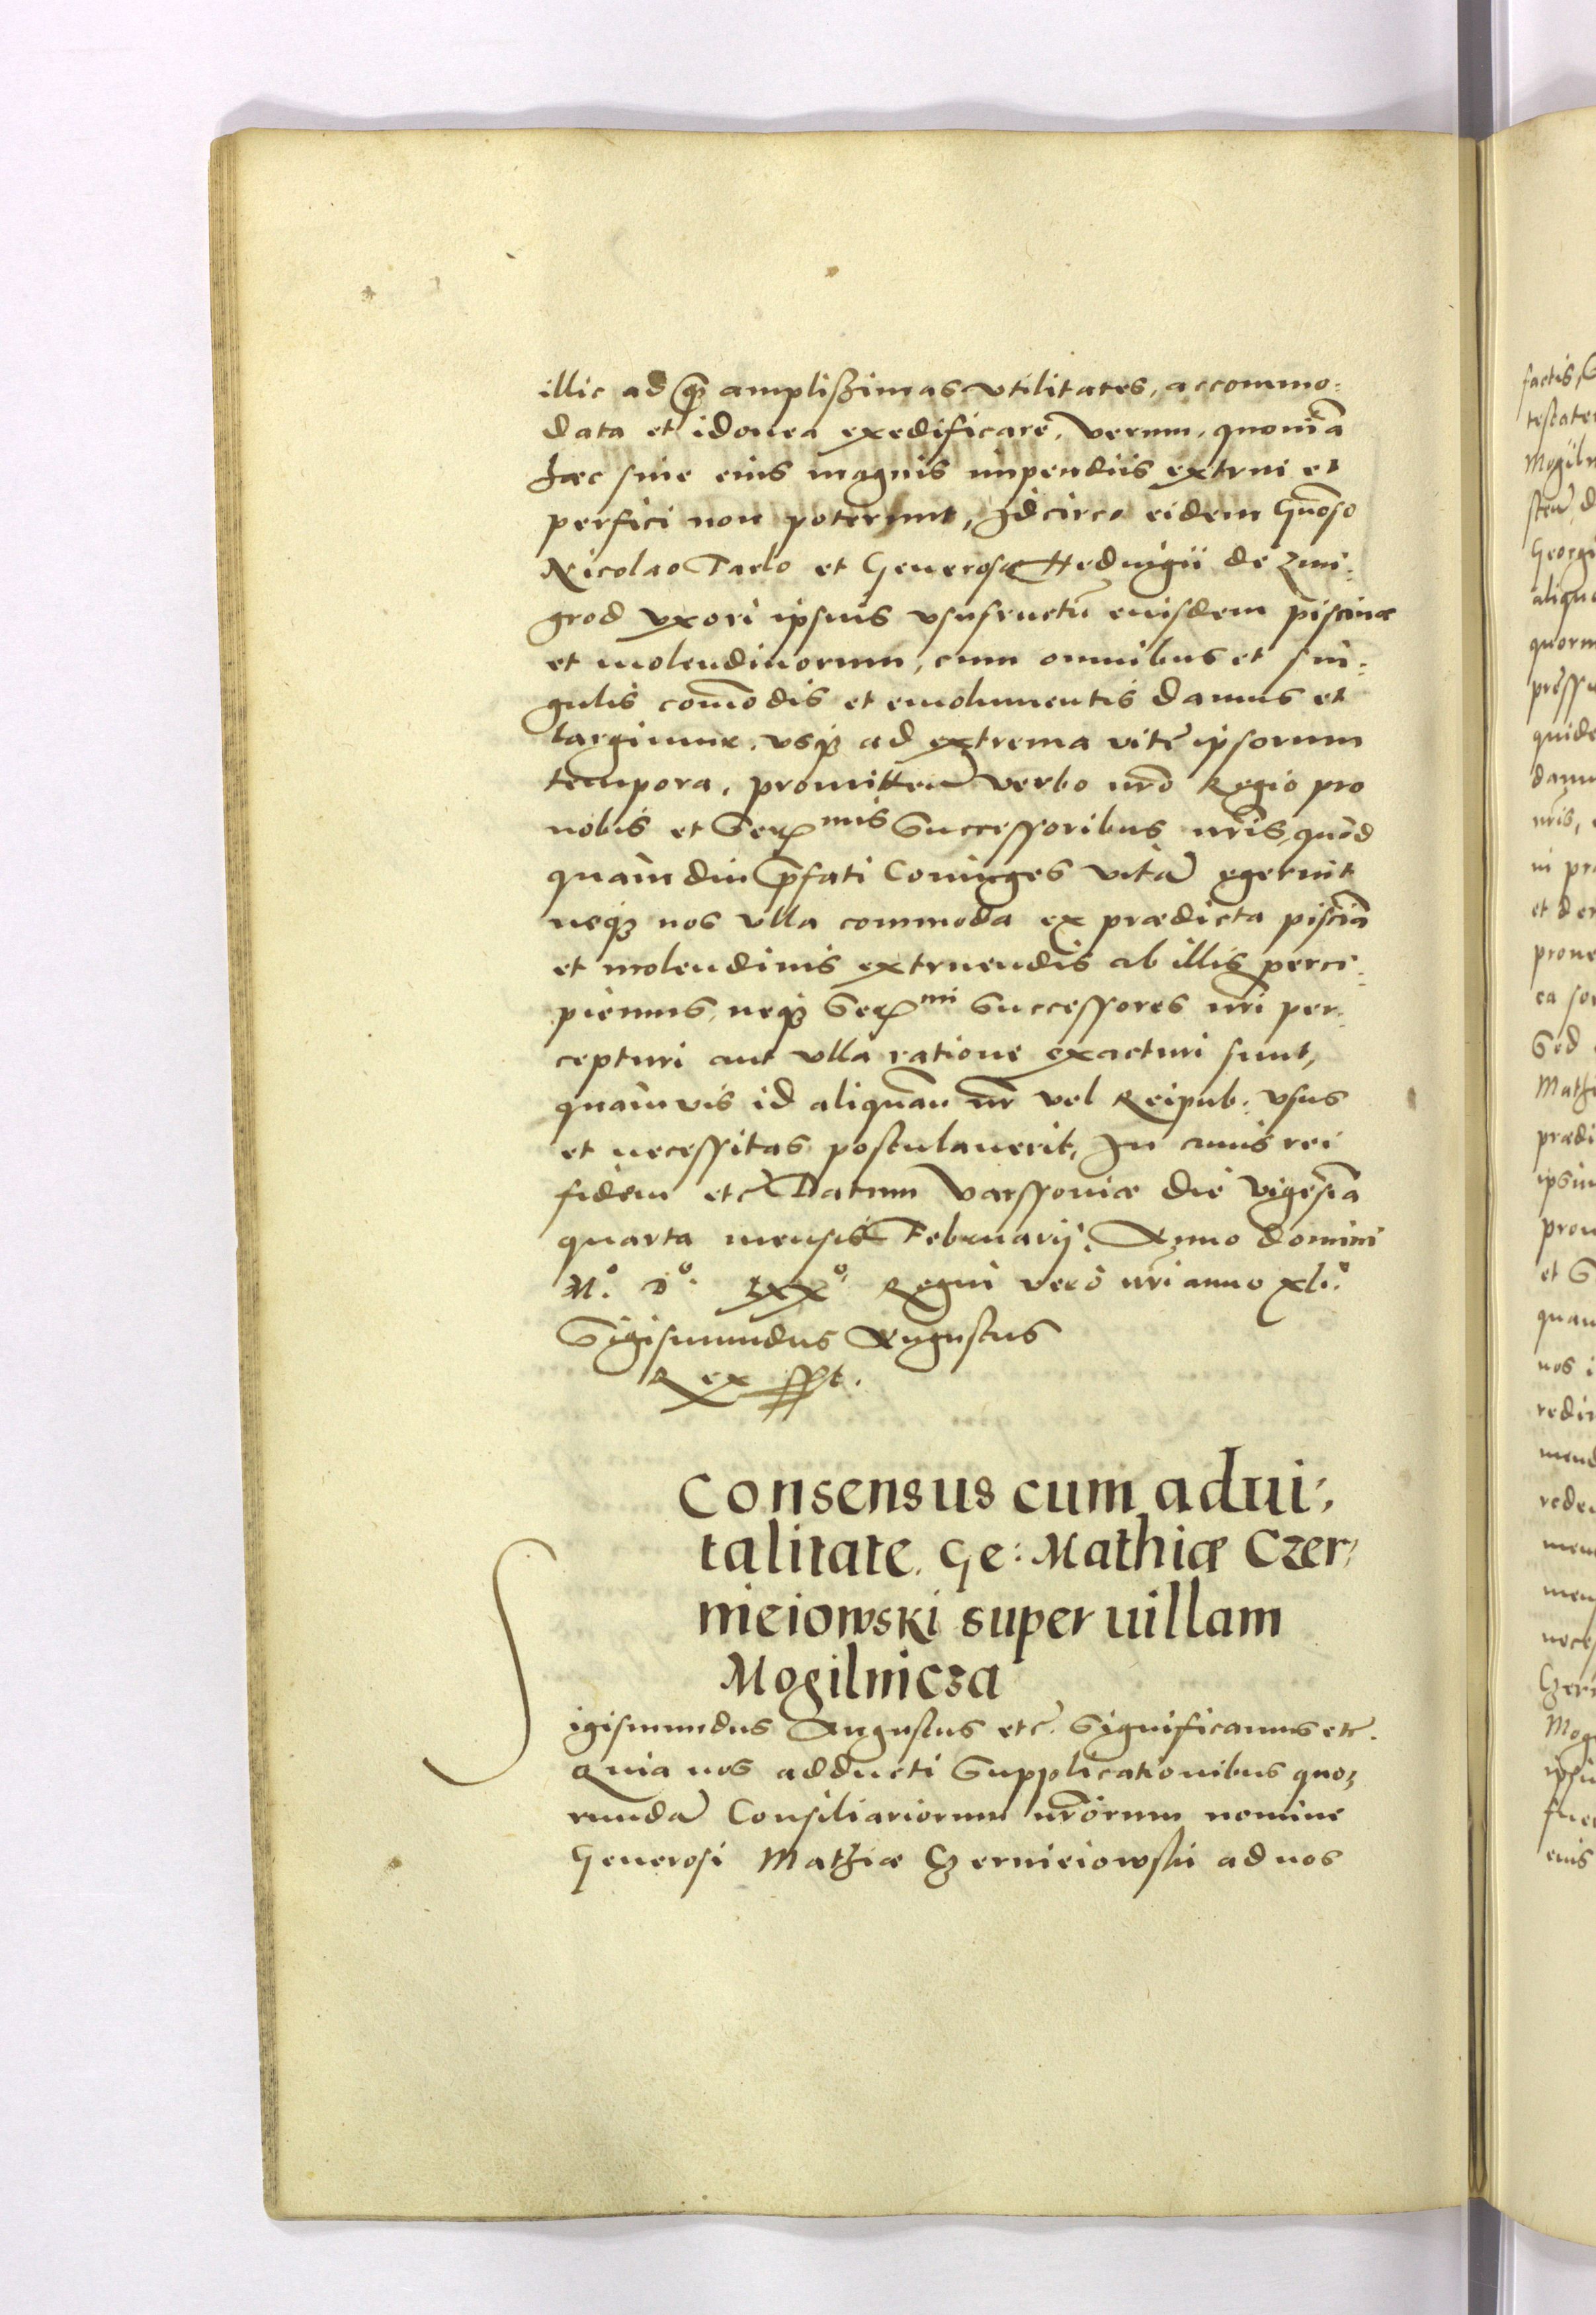 illic ad q̃ amplißimas vtilitates, accommo:
data et idonea exedificare, verum, quoniã
hæc sine eius magnis impendiis extrui et
perfici non poterunt, Idcirco eidem Gñoso
Nicolao Tarlo et Generosæ Heduigii de Zmi:
grod vxori ipsius vsufructũ eiusdem piscinæ
et molendinorum, cum omnibus et sin:
gulis com̃odis et emolumentis damus et
largimur. vsq3 ad extrema vitę ipsorum
tempora, promitten̄ verbo nr̃o Regio pro
nobis et Ser mis Successoribus nr̃is, quod
quàm diu p̃fati Coniuges vitã egerint
neq3 nos vlla commoda ex prædicta pisciã
et molendinis extruendis ab illis perci:
piemus, neq3 Ser mi Successores nr̃i per:
cepturi aut vlla ratione exacturi sunt,
quàmvis id aliquãn nr̃ vel Reipub: vsus
et necessitas postulauerit, In cuius rei
fidem etc̃ Datum Varssoviæ die vigesĩa
quarta mensis Februarij, Anno domini
M.º D.º Lxxº Regni verò nr̃i anno xli.º
Sigismundus Augustus
Rex sst.
Consensus cum adui:
talitate. Ge: Mathiæ Czer:
nieiowski super uillam
Mogilnicza
Sigismundus Augustus etc̃. Significamus etc̃.
Quia nos adducti Supplicationibus quo:
rundã Consiliariorum nr̃orum nomine
Generosi Mathiæ Czernieiowski ad nos
factis, 
Mogiln
Georgi
aliquo
quorn
quide
danu
in pr
et der
proue
ea so
Sed
Math
prædi
ipsiu
prou
et S
quan
nos i
redi
mend
rede
men
men
neces
Czer
Mog
ipsiu
eius